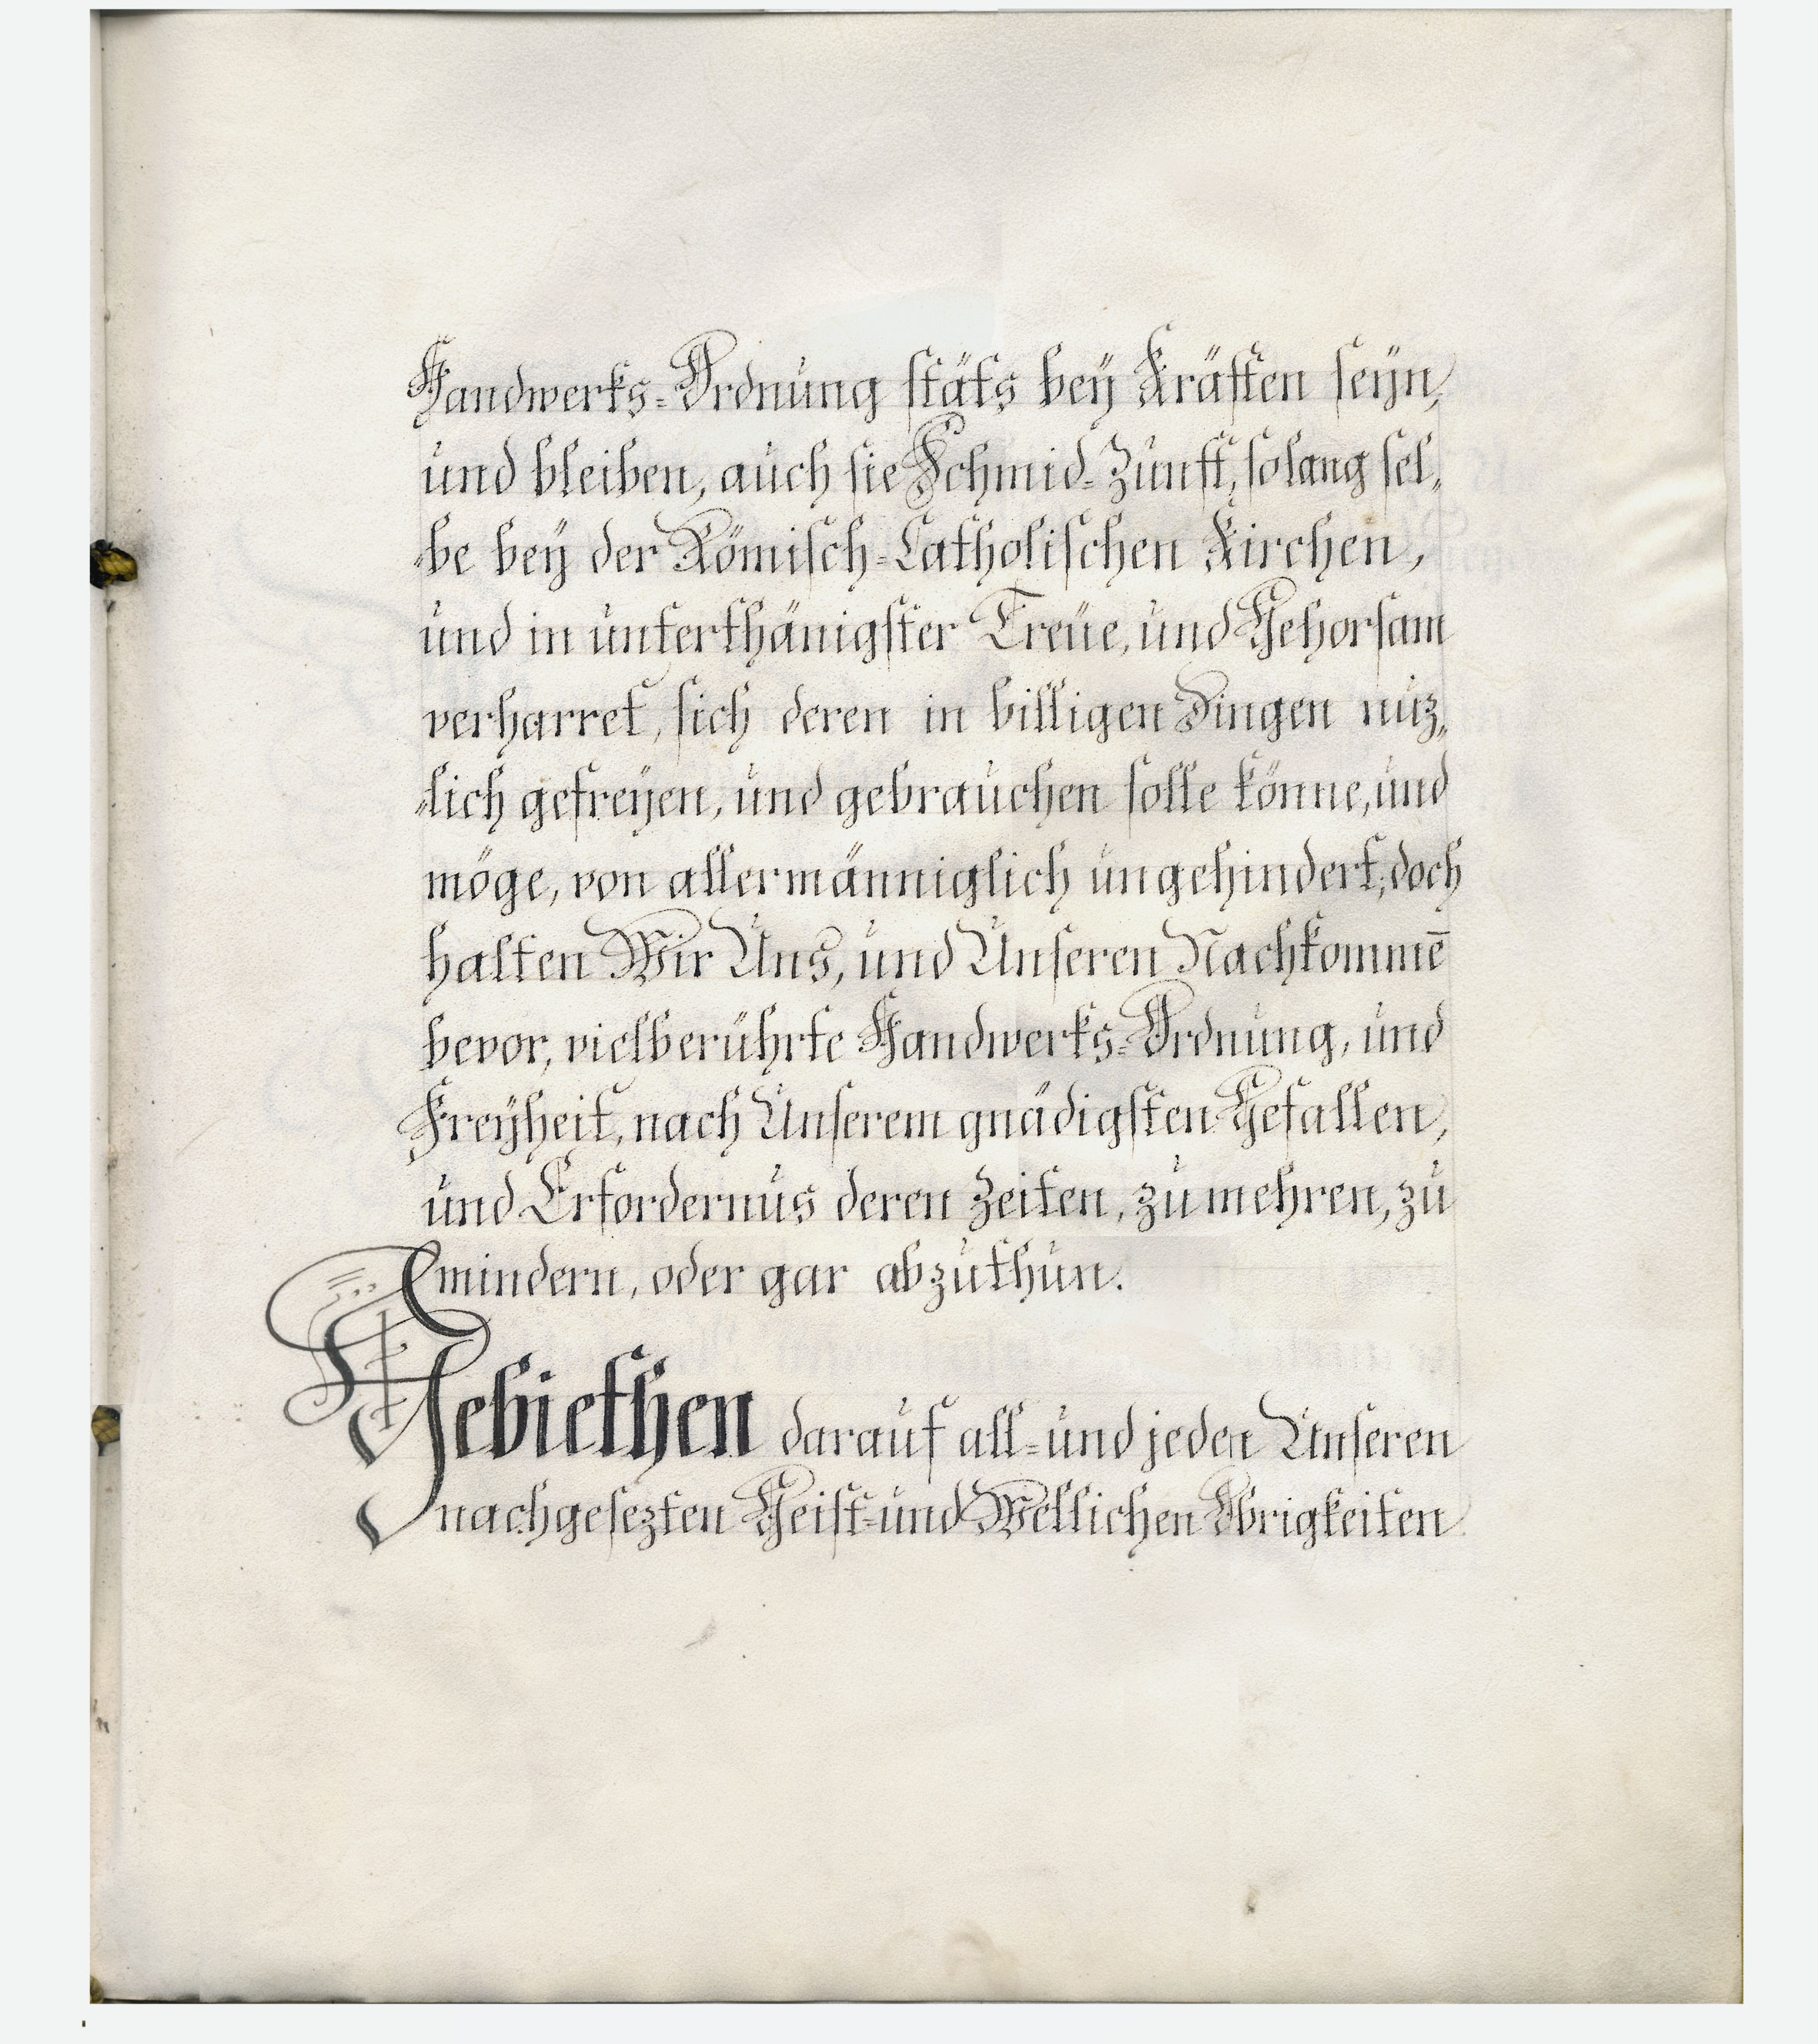 Handwerks=Ordnung stäts bey Kräften seÿn,
und bleiben, auch sie Schmid=Zunft, solang sel„
„be beÿ der Römisch=Catholischen Kirchen,
und in unterthänigster Treüe, und Gehorsam
verharret, sich deren in billigen Dingen nuz„
„lich gefreÿen, und gebrauchen solle könne, und
möge, von allermänniglich ungehindert; doch
halten Wir Uns, und Unseren Nachkommē
bevor, vielberührte Handwerks=Ordnung, und
Freÿheit, nach Unserem gnädigsten Gefallen,
und Erfordernus deren Zeiten, zu mehren, zu
mindern, oder gar abzuthun.
Gebiethen darauf all=und jeden Unseren
nachgesezten Geist=und Weltlichen Obrigkeiten